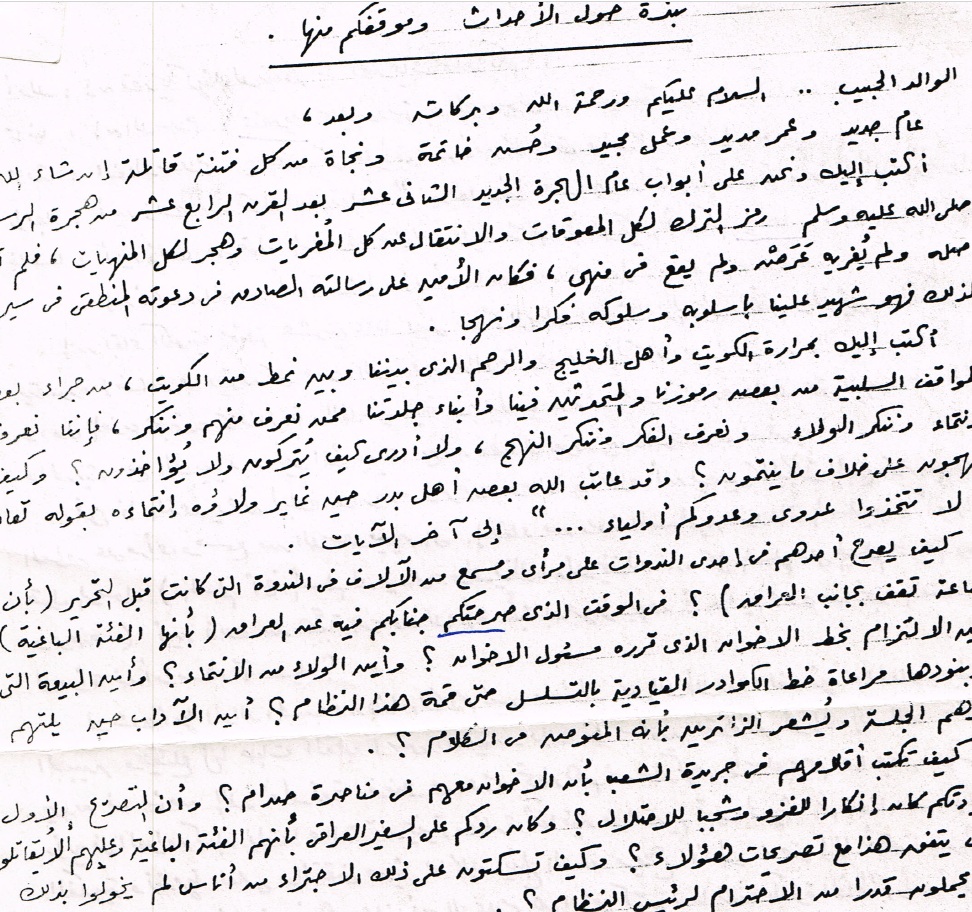 نبذة حول الأحداث وموقفكم منها .
الوالد الحبيب .. السلام عليكم ورحمة الله وبركاته وبعد ،
عام جديد وعمر مديد وعمل مجيد وحُسن خاتمة ونجاة من كل فتنة قاتلة إن شاء الله
أكتب إليك ونحن على أبواب عام الهجرة الجديد الثاني عشر بعد القرن الرابع عشر من هجرة
صلى الله عليه وسلم رمز الترك لكل المعوقات والانتقال عن كل المُغريات وهجر لكل المنهيات ، فلم
ولم يُغريه عَرَضٌ ولم يقع في منهى ، فكان الأمين على رسالته الصادق في دعوته المنطقى في
لذلك فهو شهيد علينا بأسلوبه وسلوكه فكرا ونهجا .
أكتب إليك بمرارة الكويت وأهل الخليج والرحم الذى بيننا وبين نمط من الكويت ، من جراء
المواقف السلبية من بعض رموزنا والمتحدثين فينا وأبناء جلدتنا ممن نعرف منهم وننكر ، فإننا نعرف
وننكر الولاء ونعرف الفكر وننكر النهج ، ولا أدرى كيف يُتركون ولا يُؤاخذون ؟ وكيف
ينهجون على خلاف ما ينتمون ؟ وقد عاتب الله بعض أهل بدر حين غاير ولاؤه إنتماءه بقوله
لا تتخذوا عدوى وعدوكم أولياء ... " إلى آخر الآيات .
كيف يصرح أحدهم في إحدى الندوات على مرأى ومسمع من الآلاف في الندوة التى كانت قبل التحرير ( بأن
تقف بجانب العراق ) ؟ في الوقت الذى صرحتكم جنابكم فيه عن العراق ( بأنها الفئة الباغية )
الالتزام بخط الاخوان الذى قرره مسئول الاخوان ؟ وأين الولاء من الانتماء ؟ وأين البيعة التى
بنودها مراعاة خط الكوادر القيادية بالتسلسل حتى قمة هذا النظام ؟ أين الآداب حين يلتهم
الجلسة ويُشعر الزائرين بأنه المفوض من النظام ؟ .
كيف تكتب أقلامهم في جريدة الشعب بأن الاخوان معهم في مناصرة صدام ؟ وأن التصريح الأول
كان إنكارا للغزو وشجبا للاحتلال ؟ وكان ردكم على السفير العراقى بأنهم الفئة الباغية وعليهم ألا يُقاتلوا
يتفق هذا مع تصريحات هؤلاء ؟ وكيف تسكتون على ذلك الاجتراء من أناس لم يخولوا بذلك
يحملون قدرا من الاحترام لرئيس النظام ؟ .